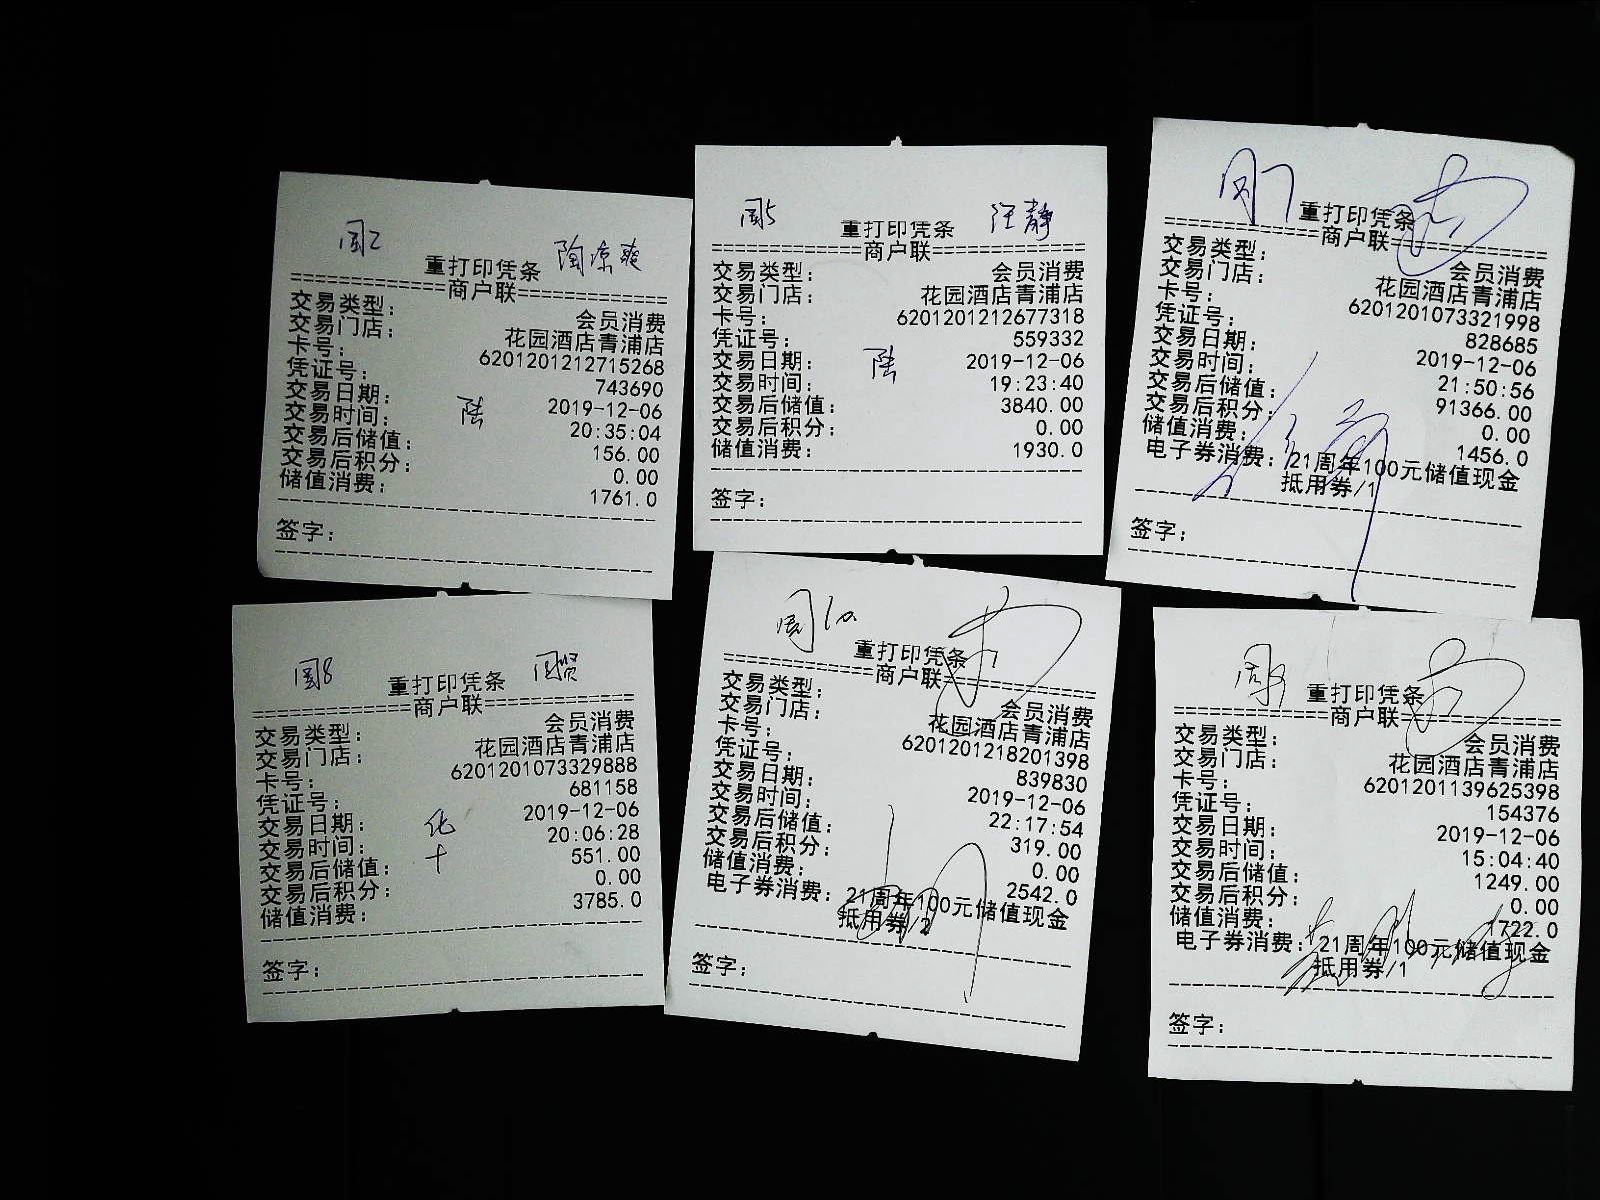 周2 陶凉爽
重打印凭条
==========商户联==========
交易类型: 会员消费
交易门店: 花园酒店青浦店
卡号: 6201201212715268
凭证号: 743690
交易日期: 2019-12-06
陆
交易时间: 20:35:04
交易后储值: 156.00
交易后积分: 0.00
储值消费: 1761.0
签字:
周5 汪静
重打印凭条
==========商户联==========
交易类型: 会员消费
交易门店: 花园酒店青浦店
卡号: 6201201212677318
凭证号: 559332
交易日期: 2019-12-06
陆
交易时间: 19:23:40
交易后储值: 3840.00
交易后积分: 0.00
储值消费: 1930.0
签字:
周7
重打印凭条
==========商户联==========
交易类型: 会员消费
交易门店: 花园酒店青浦店
卡号: 6201201073321998
凭证号: 828685
交易日期: 2019-12-06
交易时间: 21:50:56
交易后储值: 91366.00
交易后积分: 0.00
储值消费: 1456.0
电子券消费: 21周年100元储值现金
抵用券/1
签字:
周8
重打印凭条
==========商户联==========
交易类型: 会员消费
交易门店: 花园酒店青浦店
卡号: 6201201073329888
凭证号: 681158
交易日期: 2019-12-06
交易时间: 20:06:28
交易后储值: 551.00
交易后积分: 0.00
储值消费: 3785.0
签字:
周10
重打印凭条
==========商户联==========
交易类型: 会员消费
交易门店: 花园酒店青浦店
卡号: 6201201218201398
凭证号: 839830
交易日期: 2019-12-06
交易时间: 22:17:54
交易后储值: 319.00
交易后积分: 0.00
储值消费: 2542.0
电子券消费: 21周年100元储值现金
抵用券/2
签字:
周9
重打印凭条
==========商户联==========
交易类型: 会员消费
交易门店: 花园酒店青浦店
卡号: 6201201139625398
凭证号: 154376
交易日期: 2019-12-06
交易时间: 15:04:40
交易后储值: 1249.00
交易后积分: 0.00
储值消费: 1722.0
电子券消费: 21周年100元储值现金
抵用券/1
签字: